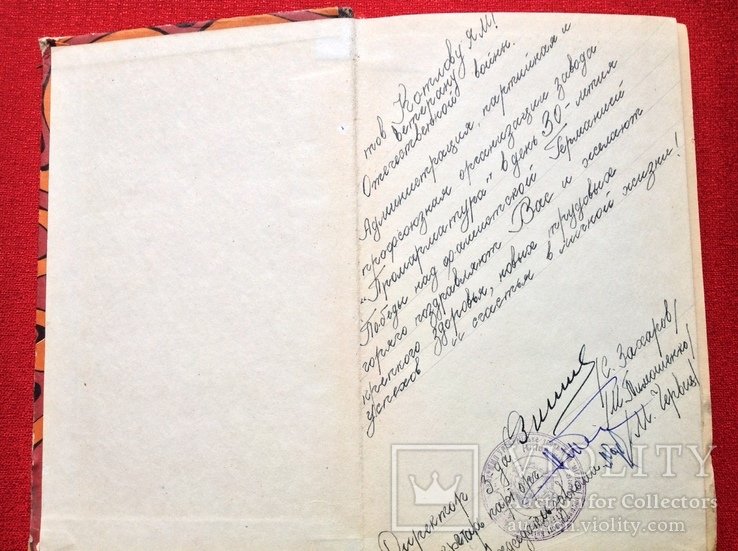 тов Котлову Я М!
ветерану
Отечественной войн.
Администрация, партийная и
профсоюзная организации завода
"Промарматура" в день 30-летия
Победы над фашистской Германией
горячо поздравляют Вас и желают
крепкого здоровья, новых трудовых
успехов и счастья в личной жизни!
Директор з-да /С Захаров/
парторг /М. Тимошенко/
VIOLITY
Auction for Collectors
auction.violity.com